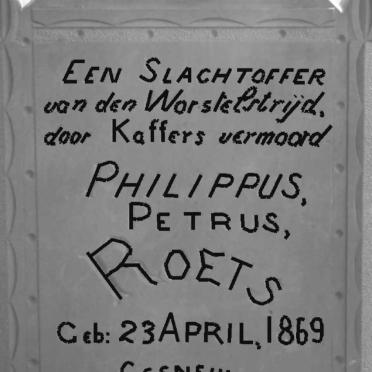 EEN SLACHTOFFER
van den Worstelstrijd,
door Kaffers vermoord
PHILIPPUS,
PETRUS,
ROETS
Geb: 23 APRIL, 1869